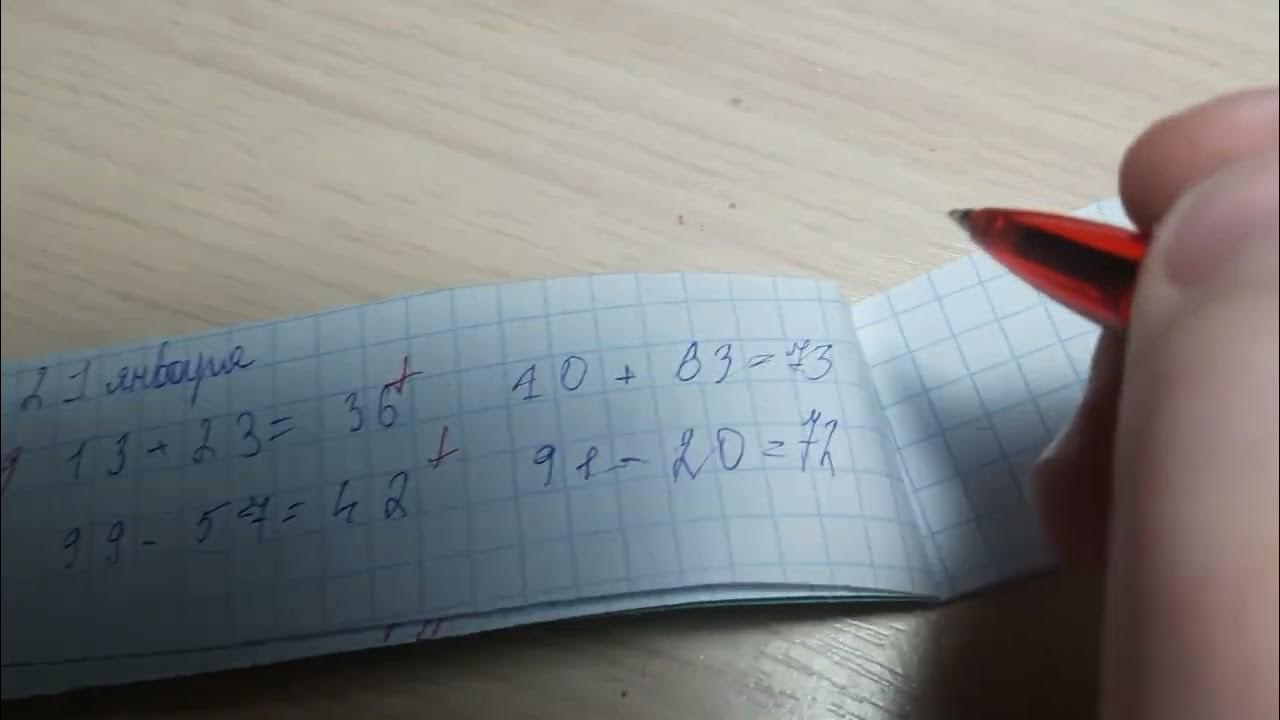 21 января
13 + 23 = 36 +
99 - 57 = 42 +
10 + 83 = 73
91 - 20 = 72